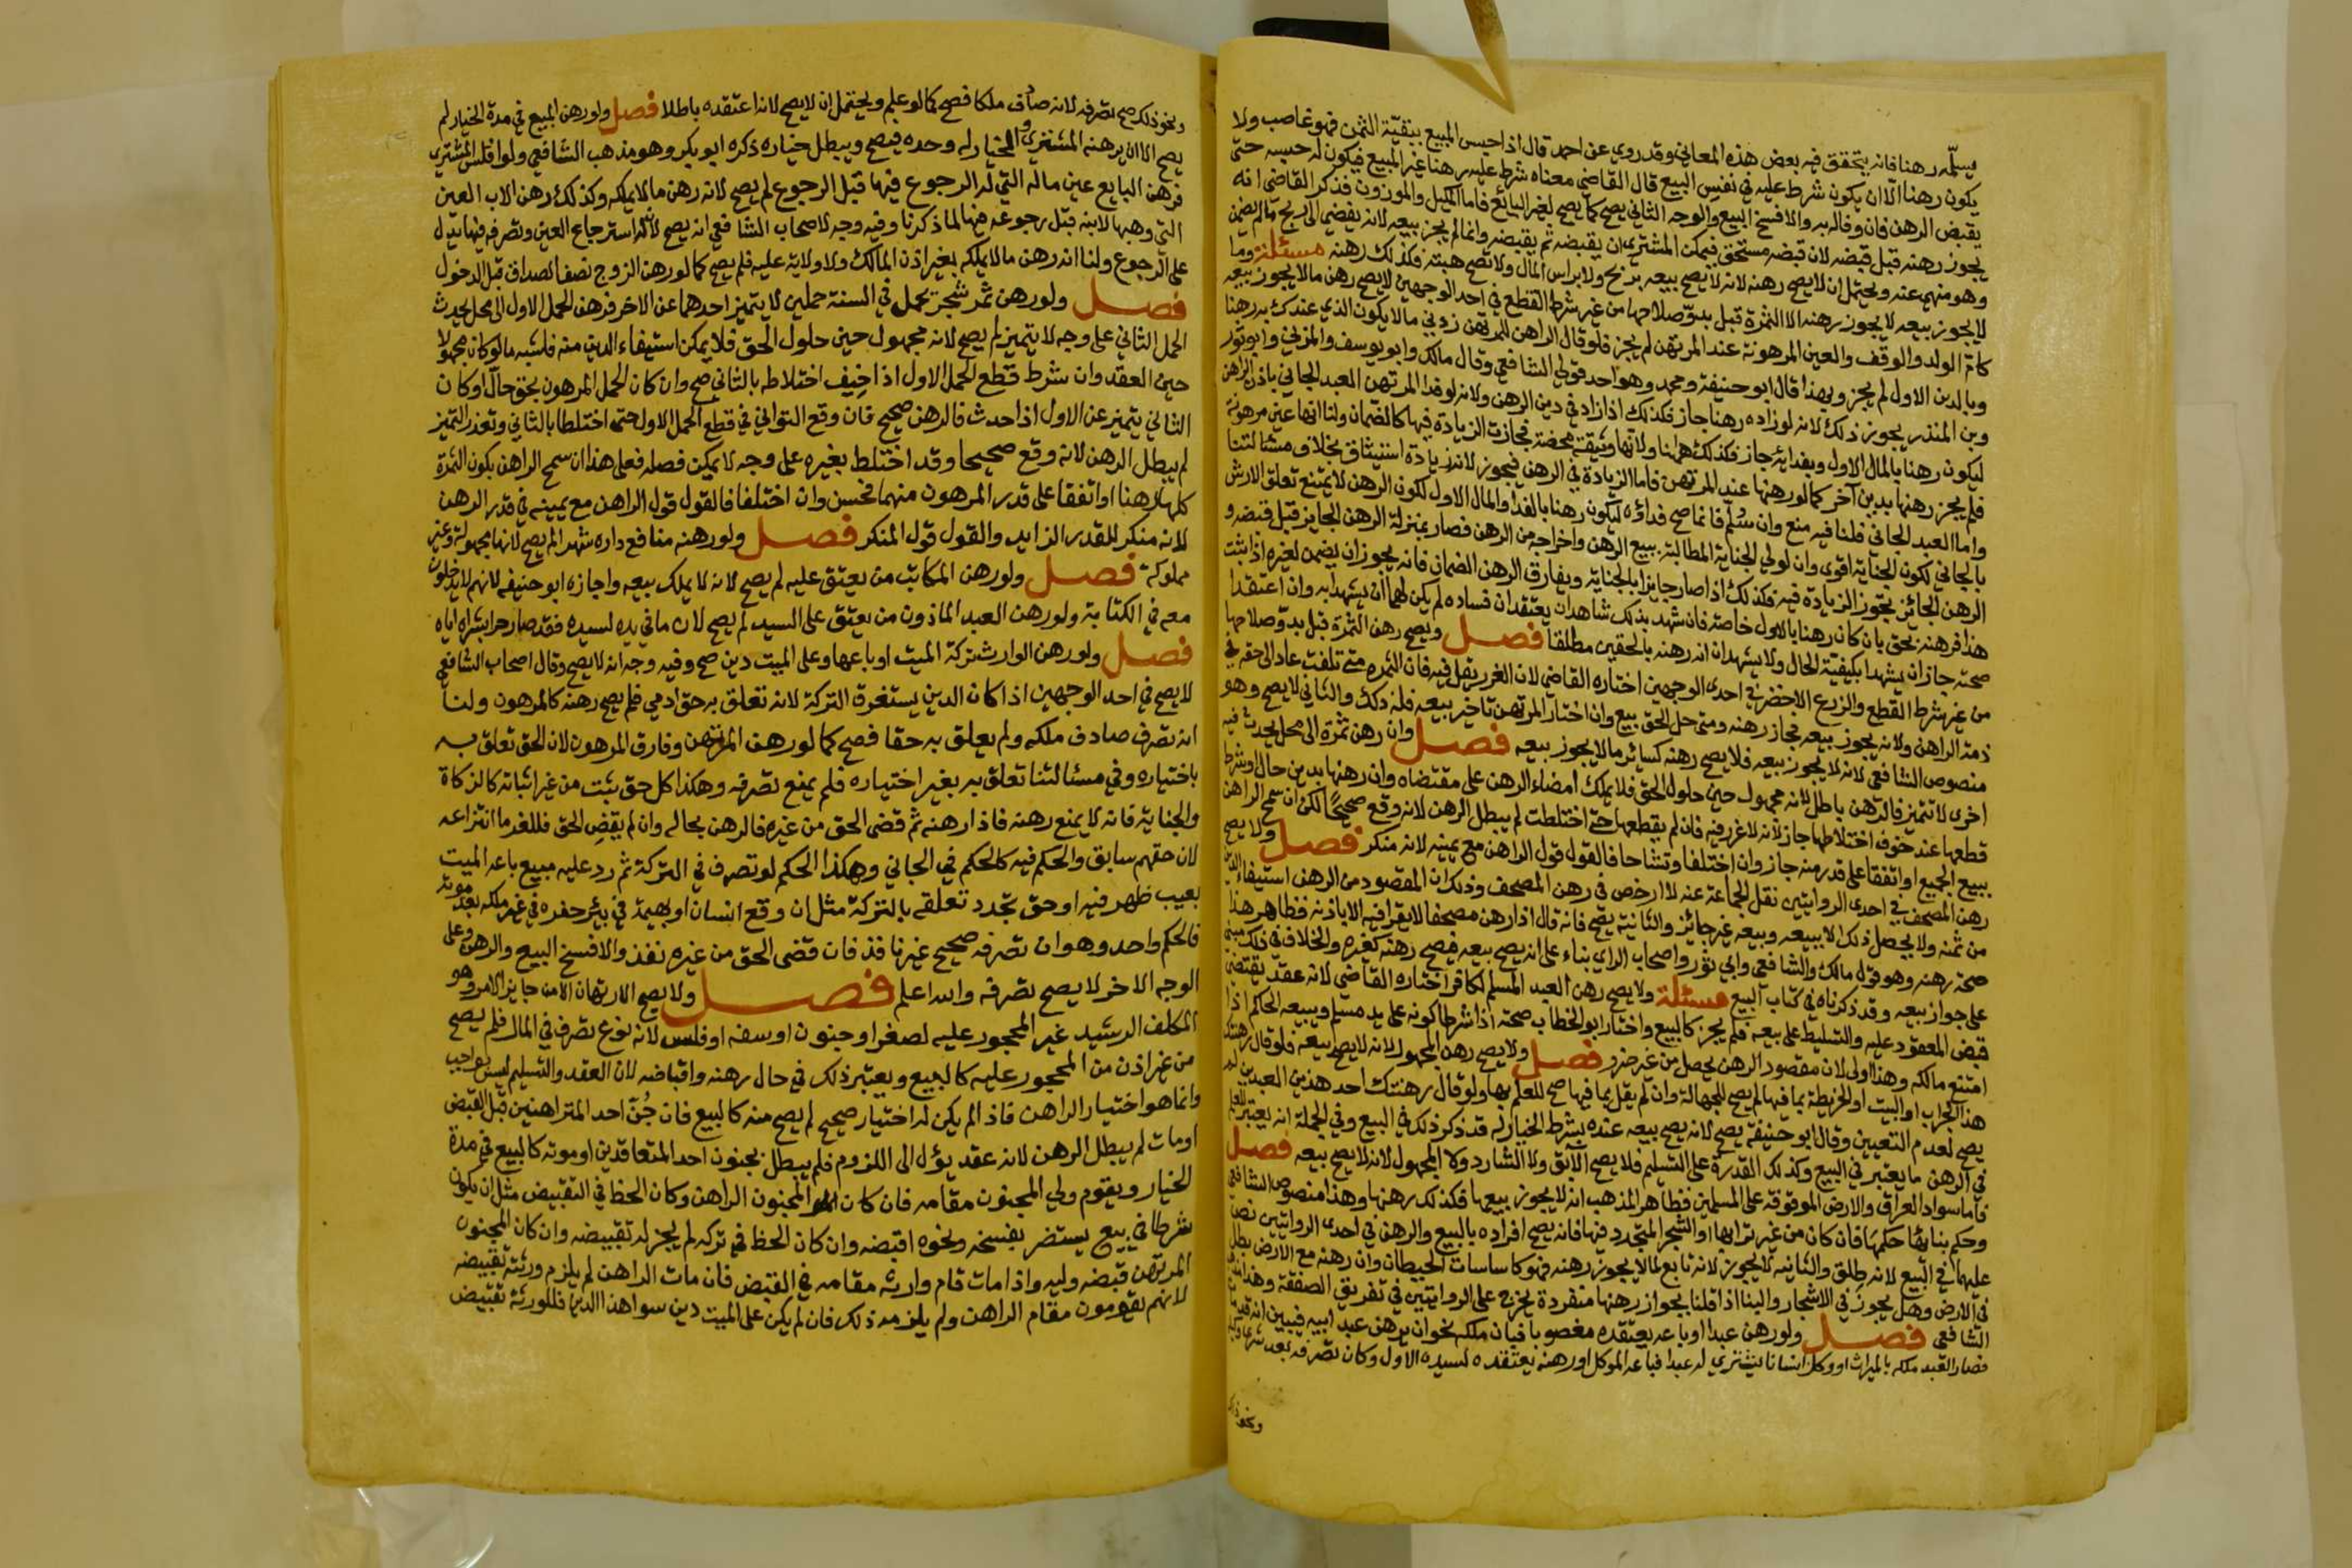 يسلمه رهنا فانه يتحقق فيه بعض هذه المعاني وقد روي عن احمد قال اذا حبس المبيع ببقيّة الثمن فهو غاصب ولا
يكون رهنا الا ان يكون شرط عليه في نفس البيع قال القاضي معناه شرط عليه رهنا غير المبيع فيكون له حبسه حتى
يقبض الرهن فان وفا له به والا فسخ البيع والوجه الثاني يصح كما يصح لغير البائع فاما المكيل والموزون فذكر القاضي انه
يجوز رهنه قبل قبضه لان قبضه مستحق فيمكن المشتري ان يقبضه ثم يقبضه وانما لم يجز بيعه لانه يفضي الى ربح ما لم يضمن
وهو منهي عنه ويحتمل ان لا يصح رهنه لانه لا يصح بيعه بربح ولا براس المال ولا تصح هبته فكذلك رهنه مسئلة وما
لا يجوز بيعه لا يجوز رهنه الا الثمرة قبل بدوّ صلاحها من غير شرط القطع في احد الوجهين لا يصح رهن ما لا يجوز بيعه
كام الولد والوقف والعين المرهونة عند المرتهن لم يجز فلو قال الراهن للمرتهن زدني مالا يكون الذي عندك به رهنا
وبالدين الاول لم يجز وبهذا قال ابو حنيفة ومحمد وهو احد قولي الشافعي وقال مالك وابو يوسف والمزني وابو ثور
وبن المنذر يجوز ذلك لانه لو زاده رهنا جاز فكذلك اذا زاد في دين الرهن ولانه لو فدا المرتهن العبد الجاني باذن الراهن
ليكون رهنا بالمال الاول وبفدايه جاز فكذلك هاهنا ولانها وثيقة محضة فجازت الزيادة فيها كالضمان ولنا انها عين مرهونة
فلم يجز رهنها بدين آخر كما لو رهنها عند المرتهن فاما الزيادة في الرهن فيجوز لانه زيادة استيثاق بخلاف مسئالتنا
واما العبد الجاني فلنا فيه منع وان سُلّم فانما صح فداؤه ليكون رهنا بالفدا والمال الاول لكون الرهن لا يمنع تعلق الارش
بالجاني لكون الجناية اقوى وان لولي الجناية المطالبة ببيع الرهن واخراجه من الرهن فصار بمنزلة الرهن الجايز قبل قبضه و
الرهن الجائز تجوز الزيادة فيه فكذلك اذا صار جايزا بالجناية ويفارق الرهن الضمان فانه يجوز ان يضمن لغيره اذا ثبت
هذا فرهنه بحق بان كان رهنا بالاول خاصة فان شهد بذلك شاهدان يعتقدان فساده لم يكن لهما ان يشهدا به وان اعتقدا
صحته جاز ان يشهدا بكيفية الحال ولا يشهدان انه رهنه بالحقين مطلقا فصل ويصح رهن الثمرة قبل بدوّ صلاحها
من غير شرط القطع والزرع الاخضر في احدى الوجهين اختاره القاضي لان الغرر يقل فيه فان الثمره متى تلفت عاد الى حقه في
ذمة الراهن ولانه يجوز بيعه فجاز رهنه ومتى حل الحق بيع وان اختار المرتهن تاخير بيعه فله ذلك والثاني لا يصح وهو
منصوص الشافعي لانه لا يجوز بيعه فلا يصح رهنه كسائر ما لا يجوز بيعه فصل وان رهن ثمرة الى محل يحدث فيه
اخرى لا تتميز فالرهن باطل لانه مجهول حين حلول الحق فلا يملك امضاء الرهن على مقتضاه وان رهنها بدين حال وشرط
قطعها عند خوف اختلاطها جاز لانه لا غرر فيه فان لم يقطعها حتى اختلطت لم يبطل الرهن لانه وقع صحيحًا لكن ان سمح الراهن
ببيع الجميع او اتفقا على قدر منه جاز وان اختلفا وتشاحا فالقول قول الراهن مع يمينه لانه منكر فصل ولا يصح
رهن المصحف في احدى الروايتين نقل الجماعة عنه لا ارخص في رهن المصحف وذلك ان المقصود من الرهن استيفاء الدين
من ثمنه ولا يحصل ذلك الا ببيعه وبيعه غير جائز والثانية يصح فانه قال اذا رهن مصحفا لا يقرا فيه الا باذنه فظاهر هذا
صحة رهنه وهو قول مالك والشافعي وابي ثور واصحاب الراي بناء على انه يصح بيعه فصح رهنه كغيره والخلاف في ذلك مبني
على جواز بيعه وقد ذكرناه في كتاب البيع مسئلة ولا يصح رهن العبد المسلم لكافر اختاره القاضي لانه عقد يقتضي
قبض المعقود عليه والتسليط على بيعه فلم يجز كالبيع واختار ابو الخطاب صحته اذا شرطا كونه على يد مسلم ويبيعه الحاكم اذا
امتنع مالكه وهذا اولى لان مقصود الرهن يحصل من غير ضرر فصل ولا يصح رهن المجهول لانه لا يصح بيعه فلو قال رهنتك
هذا الجراب او البيت او الخريطة بما فيها لم يصح للجهالة وان لم يقل بما فيها صح للعلم بها ولو قال رهنتك احد هذين العبدين لم
يصح لعدم التعيين وقال ابو حنيفة يصح لانه يصح بيعه عنده بشرط الخيار له قد ذكر ذلك في البيع وفي الجملة انه يعتبر للعلم
في الرهن ما يعتبر في البيع وكذلك القدرة على التسليم فلا يصح الآبق ولا الشارد ولا المجهول لانه لا يصح بيعه فصل
فاما سواد العراق والارض الموقوفة على المسلمين فظاهر المذهب انه لا يجوز بيعها فكذلك رهنها وهذا منصوص الشافعي
وحكم بنائها حكمها فان كان من غير ترابها او الشجر المتجدد فيها فانه يصح افراده بالبيع والرهن في احدى الروايتين نص
عليهما في البيع لانه طِلق والثانيه لا يجوز لانه تابع لما لا يجوز رهنه فهو كاساسات الحيطان وان رهنه مع الارض بطل
في الارض وهل يجوز في الاشجار والبنا اذا قلنا بجواز رهنها منفردة يخرج على الروايتين في تفريق الصفقة وهذا مذهب
الشافعي فصل ولو رهن عبدا او باعه يعتقده مغصوبا فبان ملكه نحو ان يرهن عبد ابيه فيبين انه قد مات
فصار العبد ملكه بالميراث او وكل انسانا يشتري له عبدا فباعه الموكل او رهنه يعتقده لسيده الاول وكان تصرفه بعد شرا وكيله
ونحو ذلك
ونحو ذلك صح تصرفه لانه صادف ملكا فصح كما لو علم ويحتمل ان لا يصح لانه اعتقده باطلا فصل ولو رهن المبيع في مدة الخيار لم
يصح الا ان يرهنه المشتري والخيار له وحده فيصح ويبطل خياره ذكره ابو بكر وهو مذهب الشافعي ولو افلس المشتري
فرهن البايع عين ماله التي له الرجوع فيها قبل الرجوع لم يصح لانه رهن ما لا يملكه وكذلك رهن الاب العين
التي وهبها لابنه قبل رجوعه فيها لما ذكرنا وفيه وجه لاصحاب الشافعي انه يصح لان له استرجاع العين وتصرفه فيها يدل
على الرجوع ولنا انه رهن ما لا يملكه بغير اذن المالك ولا ولاية عليه فلم يصح كما لو رهن الزوج نصف الصداق قبل الدخول
فصل ولو رهن ثمر شجر تحمل في السنة حملين لا يتميز احدهما عن الاخر فرهن الحمل الاول الى محل يحدث
الحمل الثاني على وجه لا يتميز لم يصح لانه مجهول حين حلول الحق فلا يمكن استيفاء الدين منه فاشبه ما لو كان مجهولا
حين العقد وان شرط قطع الحمل الاول اذا خيف اختلاطه بالثاني صح وان كان الحمل المرهون بحق حالّ او كان
الثاني يتميز عن الاول اذا حدث فالرهن صحيح فان وقع التواني في قطع الحمل الاول حتى اختلطا بالثاني وتعذر التميز
لم يبطل الرهن لانه وقع صحيحا وقد اختلط بغيره على وجه لا يمكن فصله فعلى هذا ان سمح الراهن بكون الثمرة
كلها رهنا او اتفقا على قدر المرهون منهما فحسن وان اختلفا فالقول قول الراهن مع يمينه في قدر الرهن
لانه منكر للقدر الزايد والقول قول المنكر فصل ولو رهنه منافع داره شهرا لم يصح لانها مجهولة وغير
مملوكة فصل ولو رهن المكاتب من يعتق عليه لم يصح لانه لا يملك بيعه واجازه ابو حنيفه لانهم لا يدخلون
معه في الكتابة ولو رهن العبد الماذون من يعتق على السيد لم يصح لان ما في يده لسيده فقد صار حرا بشراه اياه
فصل ولو رهن الوارث تركة الميت او باعها وعلى الميت دين صح وفيه وجه انه لا يصح وقال اصحاب الشافعي
لا يصح في احد الوجهين اذا كان الدين يستغرق التركة لانه تعلق به حق ادمي فلم يصح رهنه كالمرهون ولنا
انه تصرف صادف ملكه ولم يعلق به حقا فصح كما لو رهن المرتهن وفارق المرهون لان الحق تعلق به
باختياره وفي مسئالتنا تعلق به بغير اختياره فلم يمنع تصرفه وهكذا كل حق ثبت من غير اثباته كالزكاة
والجناية فانه لا يمنع رهنه فاذا رهنه ثم قضى الحق من غيره فالرهن بحاله وان لم يقضِ الحق فللغرما انتزاعه
لان حقهم سابق والحكم فيه كالحكم في الجاني وهكذا الحكم لو تصرف في التركة ثم رد عليه مبيع باعه الميت
بعيب ظهر فيه او حق تجدد تعلقه بالتركة مثل ان وقع انسان او بهيمة في بئر حفره في غير ملكه بعد موته
فالحكم واحد وهو ان تصرفه صحيح غير نافذ فان قضى الحق من غيره نفذ والا فسخ البيع والرهن وعلى
الوجه الاخر لا يصح تصرفه والله اعلم فصل ولا يصح الارتهان الا من جايز الامر وهو
المكلف الرشيد غير المحجور عليه لصغر او جنون او سفه او فلس لانه نوع تصرف في المال فلم يصح
من غير اذن من المحجور عليه كالبيع ويعتبر ذلك في حال رهنه واقباضه لان العقد والتسليم ليس بواجب
وانما هو اختيار الراهن فاذا لم يكن له اختيار صحيح لم يصح منه كالبيع فان جُنّ احد المتراهنين قبل القبض
او مات لم يبطل الرهن لانه عقد يؤل الى اللزوم فلم يبطل بجنون احد المتعاقدين او موته كالبيع في مدة
الخيار ويقوم ولي المجنون مقامه فان كان المجنون الراهن وكان الحظ في التقبيض مثل ان يكون
شرطا في بيع يستضر بفسخه ونحوه اقبضه وان كان الحظ في تركه لم يجز له تقبيضه وان كان المجنون
المرتهن قبضه وليه واذا مات قام وارثه مقامه في القبض فان مات الراهن لم يلزم ورثته تقبيضه
لانهم يقومون مقام الراهن ولم يلزمه ذلك فان لم يكن على الميت دين سوا هذا الدين فللورثة تقبيض